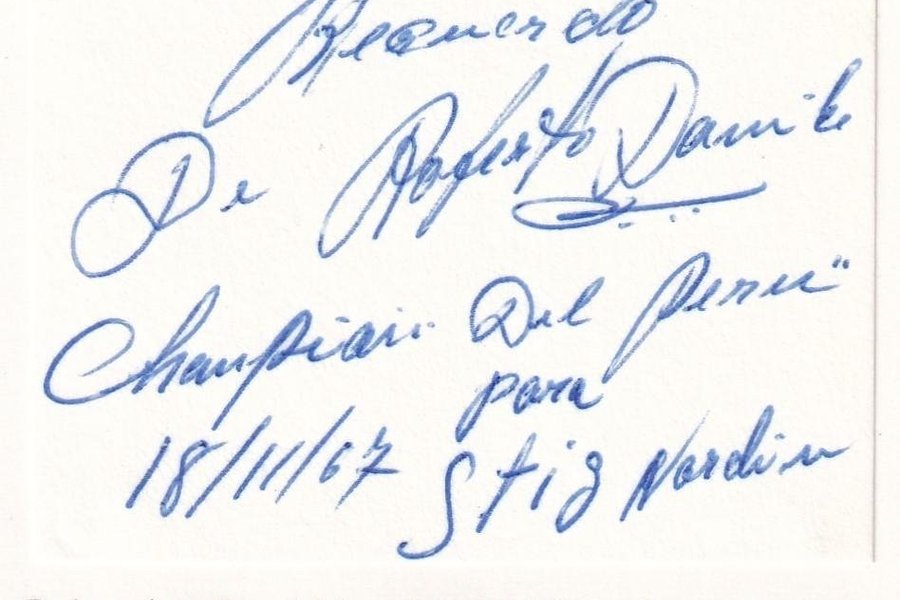 Recuerdo
De Roberto Davila
Champion Del Peru"
para
18/11/67 Stig Nordin